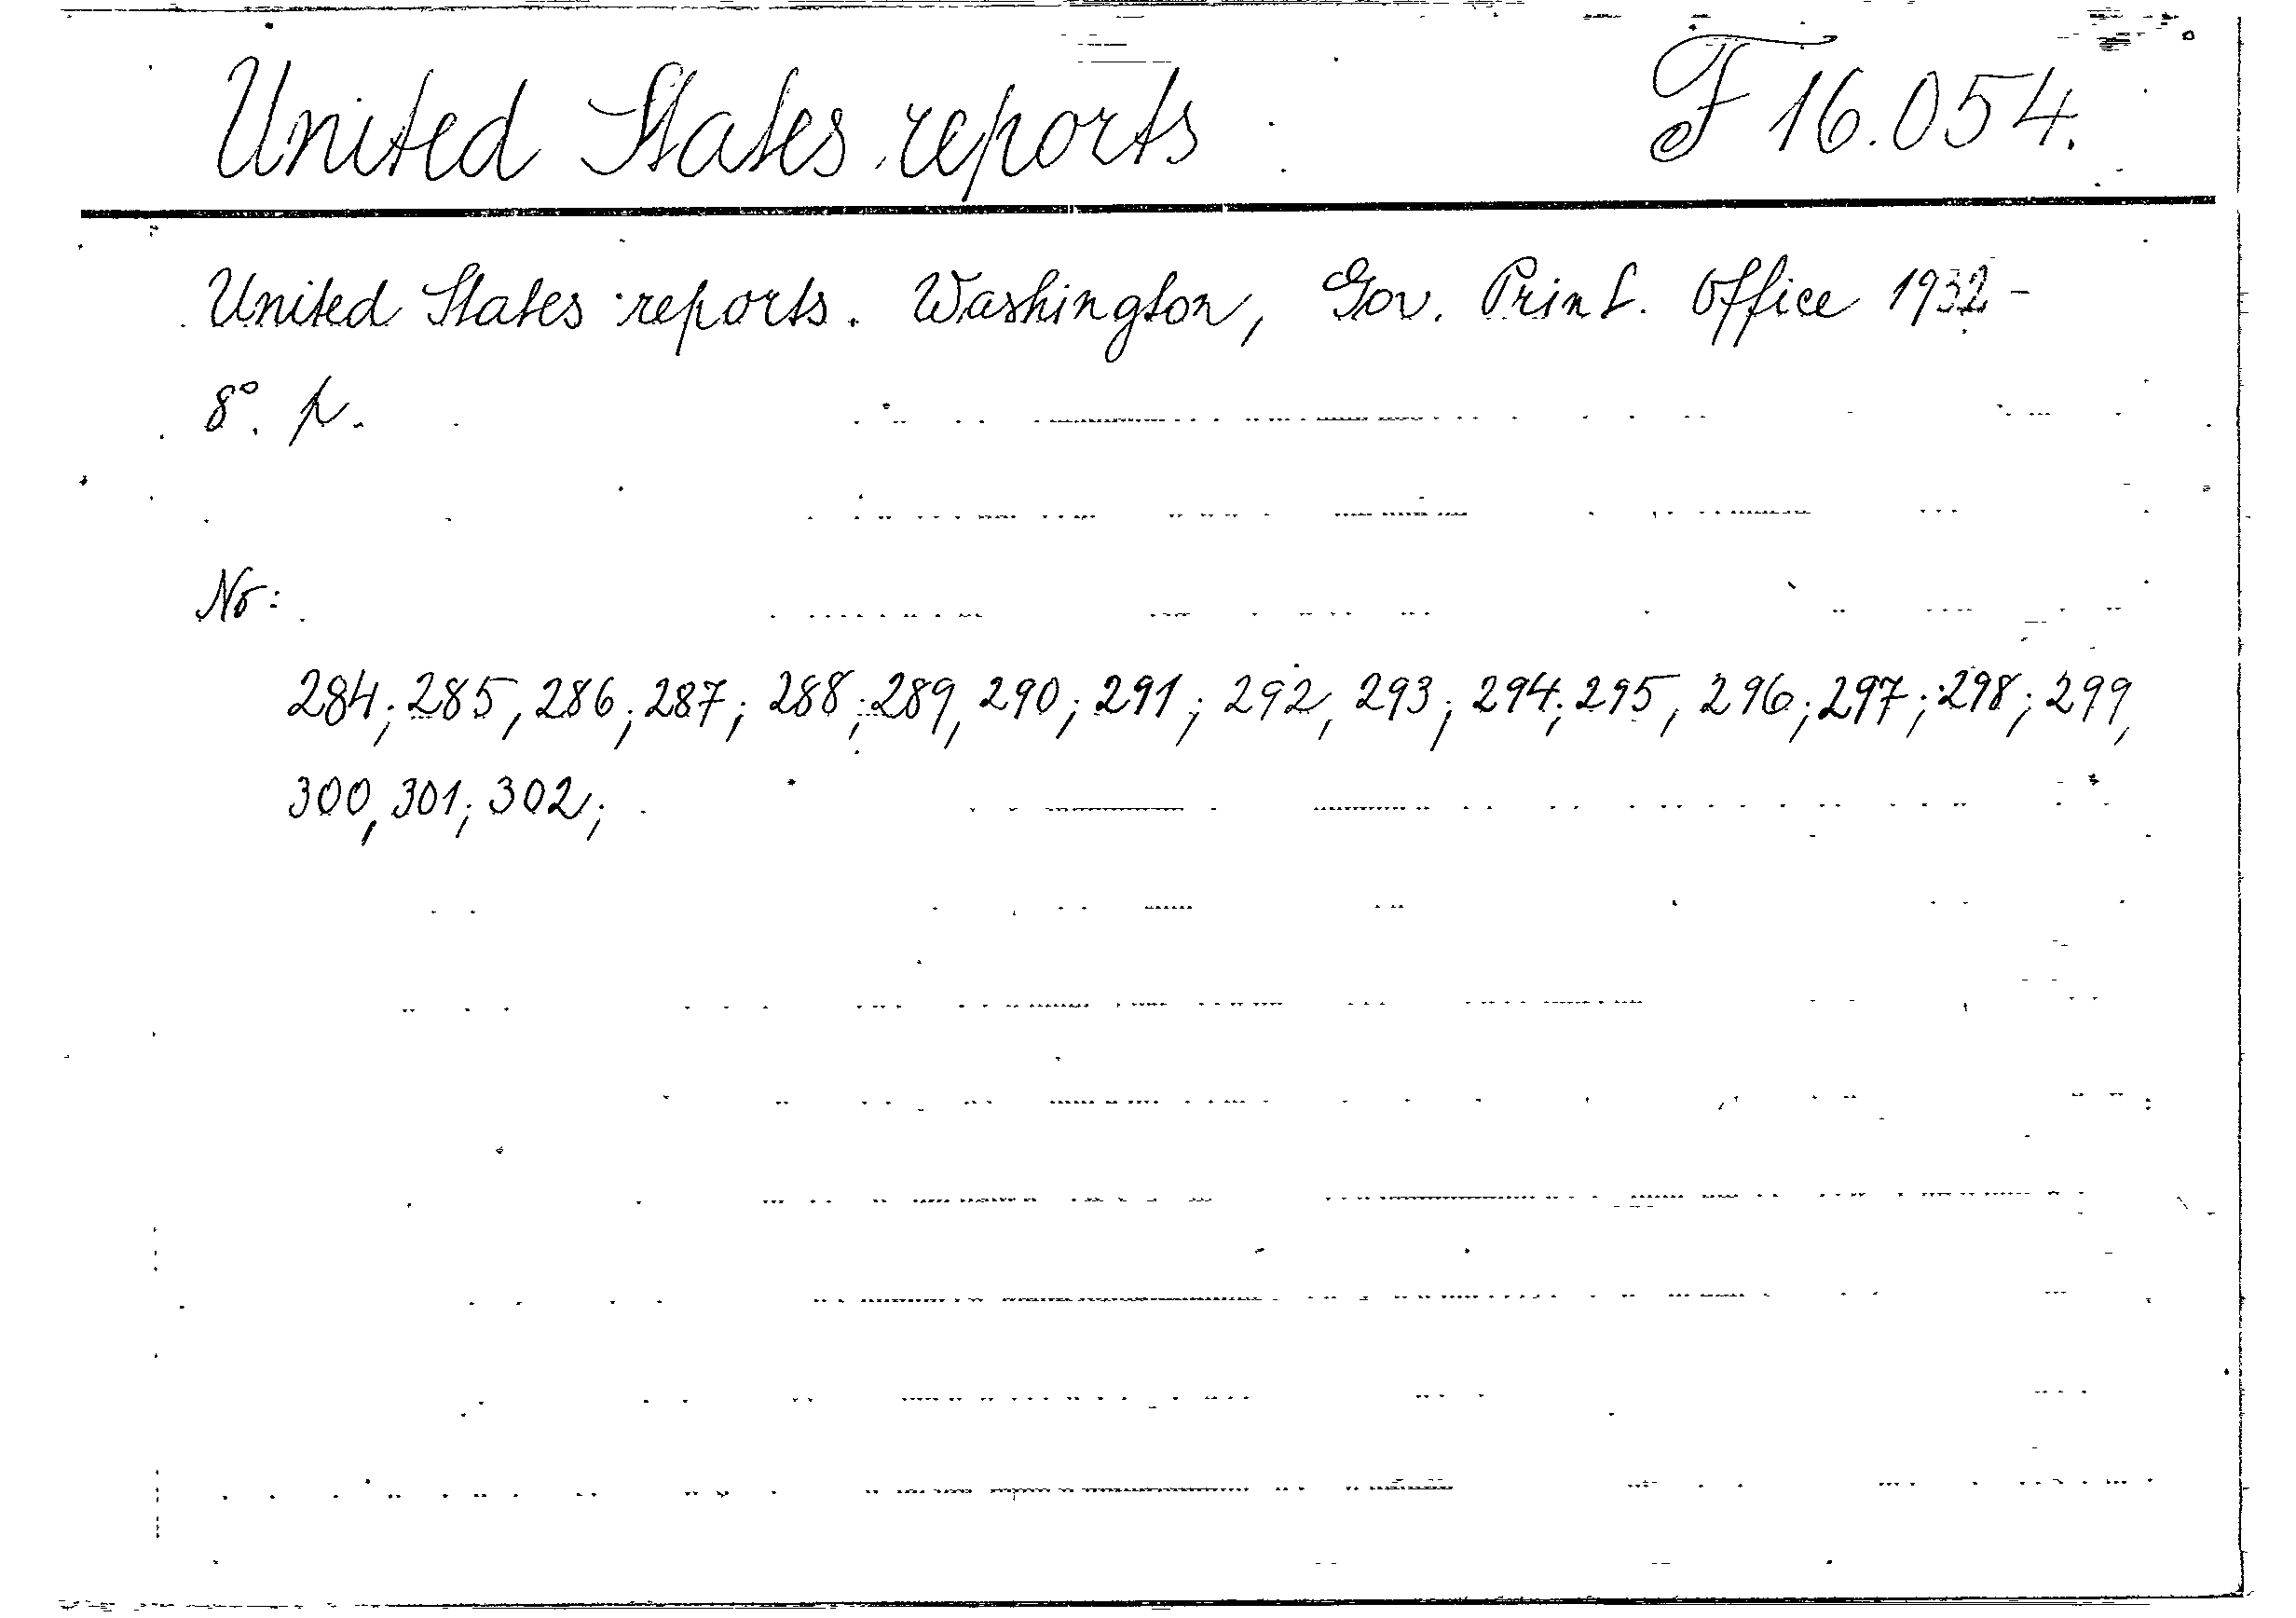 United States reports F 16.054.
United States reports. Washington, Gov. Print. Office 1932 -
8°. p.
No:
284; 285, 286; 287; 288; 289, 290; 291; 292, 293; 294; 295, 296; 297; 298; 299,
300, 301; 302;